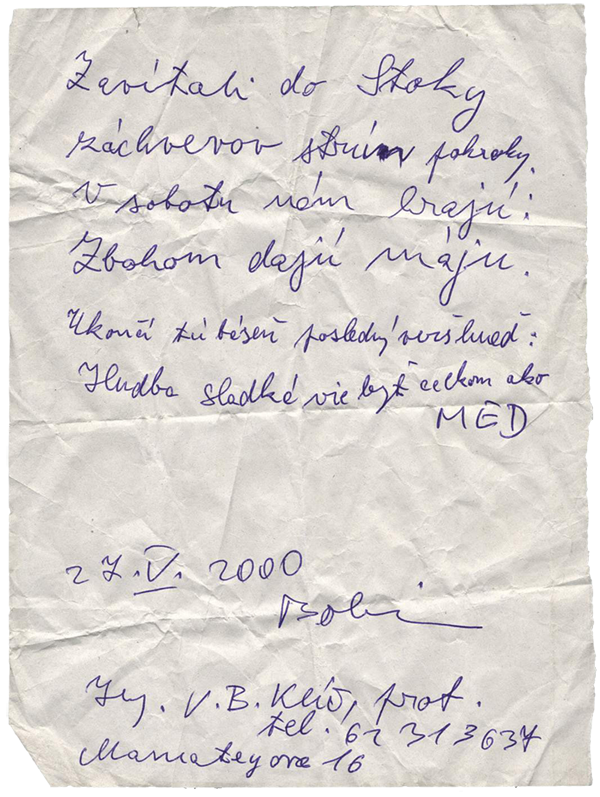 Zavítali do Stoky
záchvevov strún pokroky.
V sobotu nám hrajú:
Zbohom dajú máju.
Ukončí tú báseň posledný verš hneď:
Hudba sladká vie byť celkom ako
MED
27.V. 2000
Bobi
Ing. V. B. prof.
tel. 62313637
16